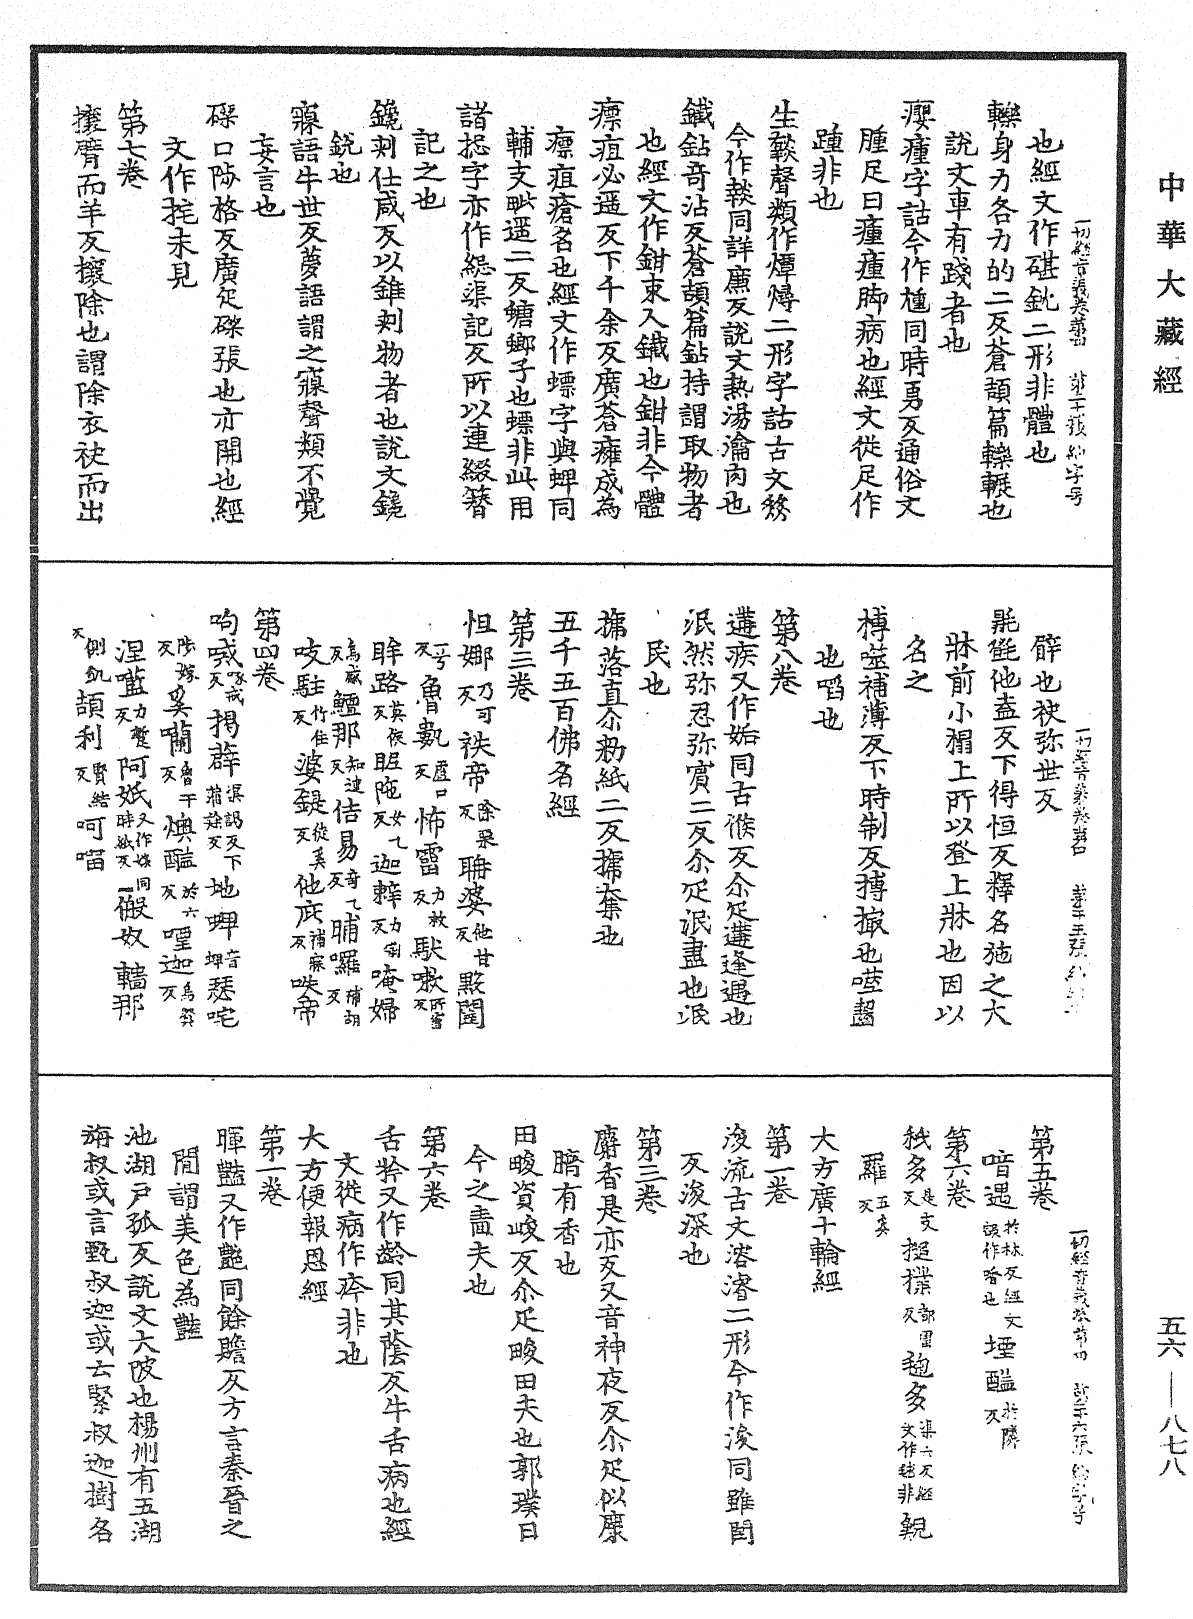 中華大藏經
五六——八七八
也經文作碪鈂二形非體也
轢身力各力的二反蒼頡篇轢輾也
說文車有踐者也
瘿瘇字詁今作尰同時勇反通俗文
腫足曰瘇瘇腳病也經文從足作
踵非也
生燅聲類作燂燖二形字詁古文錟
今作䅾同詳廉反說文熱湯瀹肉也
鐵鉆奇沾反蒼頡篇鉆持謂取物者
也經文作鉗束入鐵也鉗非今體
瘭疽必遥反下千余反廣蒼癰成為
瘭疽瘡名也經文作螵字與蜱同
輔支毗遥二反螗螂子也螵非此用
諸惎字亦作綨渠記反所以連綴簪
記之也
鑱刺仕咸反以錐刺物者也說文鑱
銳也
寱語牛世反夢語謂之寱聲類不覺
妄言也
磔口陟格反廣疋磔張也亦開也經
文作挓未見
第七卷
攘臂而羊反攘除也謂除衣袂而出
臂也袂弥世反
毾㲪他盍反下得恒反釋名施之大
牀前小榻上所以登上牀也因以
名之
搏噬補薄反下時制反搏撮也噬齧
也㗖也
第八卷
遘疾又作姤同古候反尒疋遘逢遇也
泯然弥忍弥賓二反尒疋泯盡也泯
民也
㨹落直尒勑紙二反㨹奪也
五千五百佛名經
第三卷
怛娜乃可反袟帝除栗反聃婆他甘反㸃闔
一兮反魯㪇盧口反怖霤力救反馱嗽所霤反
眸路莫侯反眤陁女乙反迦辢力割反唵婦
烏感反鱣那知連反佶易奇乙反晡囉補胡反
吱駐竹住反婆鍉徒奚反他庇補寐反㖂帝
第四卷
呴㘎呼戒反揭薜渠謁反下蒲隸反地蜱音蜱瑟咤
陟嫁反奚㘓魯干反燠醯於六反㗌迦烏奚反
涅㘕力暫反阿㚷又作㛂同時紙反一儼奴䡴那
側飢反頡利賢結反呵㗭
第五卷
喑遇於林反經文誤作㗃也堙醯於隣反
第六卷
秖多是支反搥㩡都雷反毱多渠六反經文作毬非覣
羅五奚反
大方廣十輪經
第一卷
浚流古文濬㴊二形今作浚同雖閏
反浚深也
第三卷
麝香是亦反又音神夜反尒疋似麋
臍有香也
田畯資峻反尒疋畯田夫也郭璞曰
今之嗇夫也
第六卷
舌𤵺又作齡同其蔭反牛舌病也經
文從病作疼非也
大方便報恩經
第一卷
暉豔又作艷同餘贍反方言秦晉之
間謂美色為豔
池湖戶孤反說文大陂也揚州有五湖
㫋叔或言甄叔迦或云緊叔迦樹名